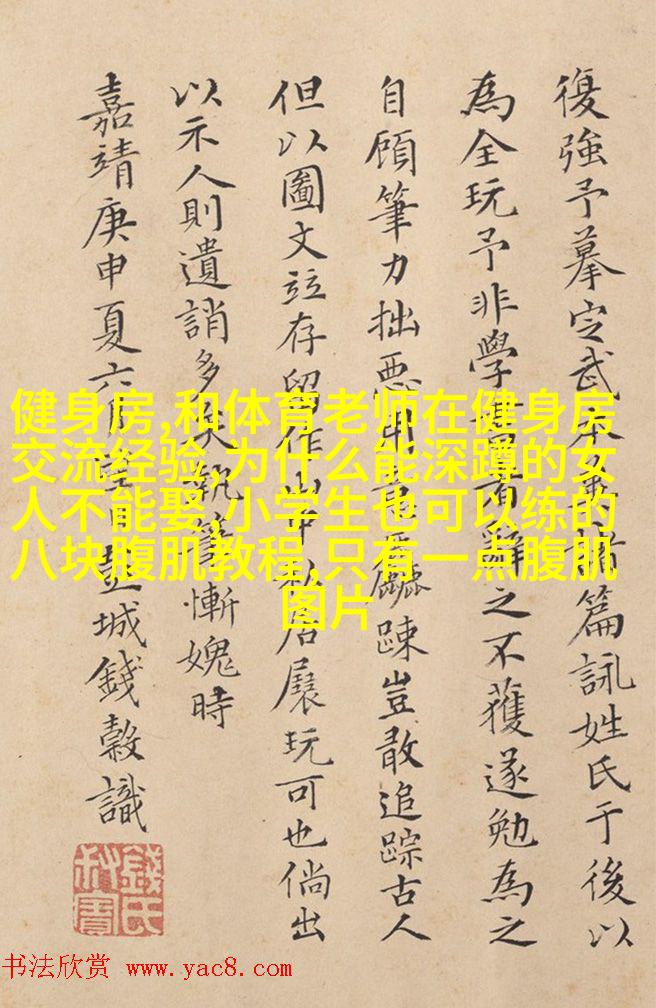 復強予摹定武本諸篇詠姓氏于後以
為全玩予非學書者辭之不獲遂勉為之
自顧筆力拙惡用筆麤踈豈敢追踪古人
但以圖文竝存留作山中私居展玩可也倘出
以示人則遺誚多矣執筆慚媿時
嘉靖庚申夏六月望日彭城錢榖識
錢氏叔寶
健身房,和体育老师在健身房
交流经验,为什么能深蹲的女
人不能娶,小学生也可以练的
八块腹肌教程,只有一点腹肌
图片
书法欣赏 www.yac8.com